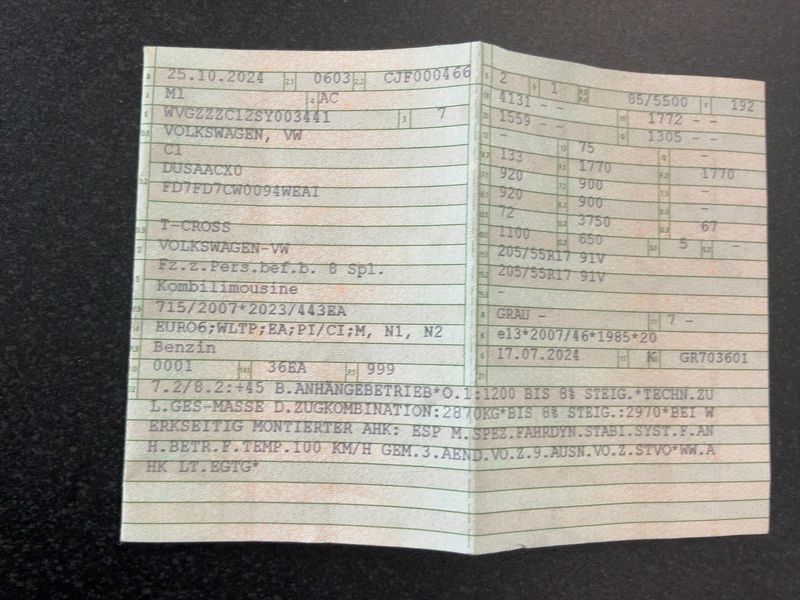 25.10.2024 0603 CJF000466
M1 AC
WVGZZZC12SY003441 7
VOLKSWAGEN, VW
C1
DUSAACX0
FD7FD7CW0094WEA1
T-CROSS
VOLKSWAGEN-VW
Fz.z.Pers.bef.b. 8 Spl.
Kombilimousine
715/2007*2023/443EA
EURO6;WLTP;EA;PI/CI;M, N1, N2
Benzin
0001 36EA 999
2 1 85/5500 192
4131 - - 1772 - -
1559 - - 1305 - -
- 75 -
133 1770 1770
920 900 -
920 900 -
72 3750 67
1100 650 5 -
205/55R17 91V
205/55R17 91V
-
GRAU - 7 -
e13*2007/46*1985*20
17.07.2024 K GR703601
7.2/8.2:+45 B.ANHÄNGEBETRIEB*O.1:1200 BIS 8% STEIG.*TECHN.ZU
L.GES-MASSE D.ZUGKOMBINATION:2870KG*BIS 8% STEIG.:2970*BEI W
ERKSEITIG MONTIERTER AHK: ESP M.SPEZ.FAHRDYN.STABI.SYST.F.AN
H.BETR.F.TEMP.100 KM/H GEM.3.AEND.VO.Z.9.AUSN.VO.Z.STVO*WW.A
HK LT.EGTG*